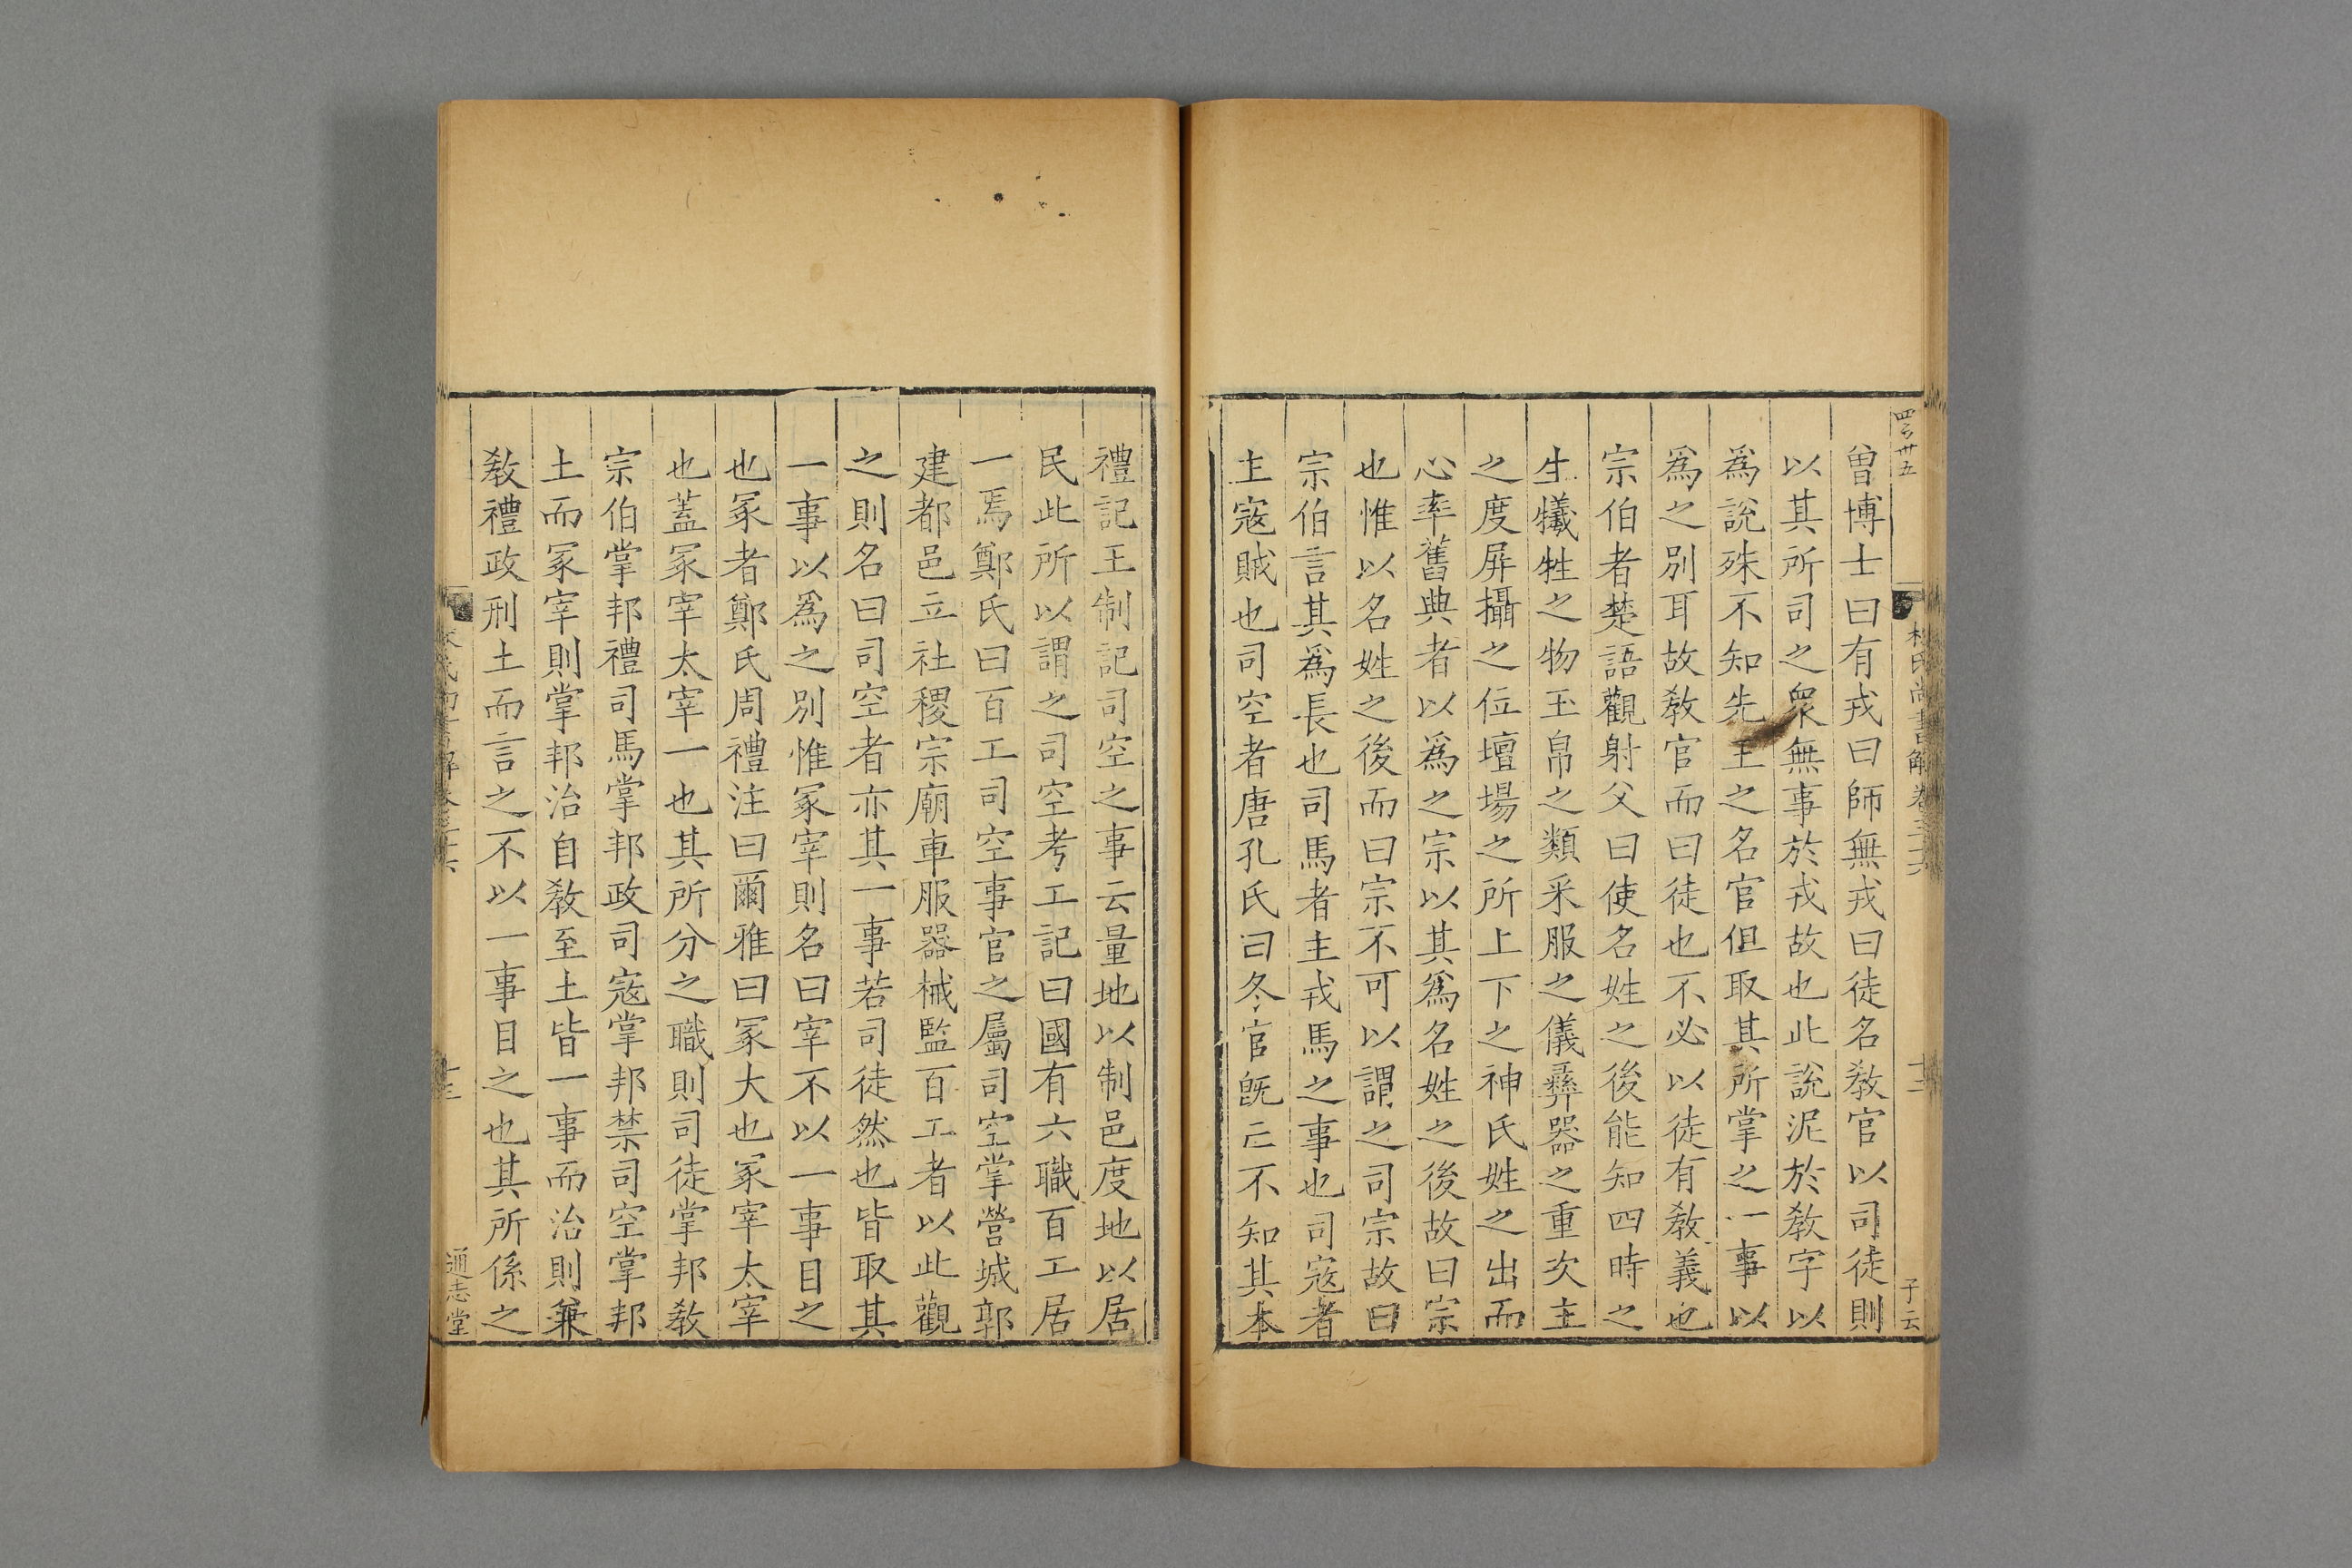 曾博士曰有戎曰師無戎曰徒名敎官以司徒則
以其所司之衆無事於戎故也此說泥於敎字以
爲說殊不知先王之名官但取其所掌之一事以
爲之別耳故敎官而曰徒也不必以徒有敎義也
宗伯者楚語觀射父曰使名姓之後能知四時之
生犧牲之物玉帛之類采服之儀彝器之重次主
之度屛攝之位壇場之所上下之神氏姓之出而
心率舊典者以爲之宗以其爲名姓之後故曰宗
也惟以名姓之後而曰宗不可以謂之司宗故曰
宗伯言其爲長也司馬者主戎馬之事也司寇者
主寇賊也司空者唐孔氏曰冬官旣亡不知其本
禮記王制記司空之事云量地以制邑度地以居
民此所以謂之司空考工記曰國有六職百工居
一焉鄭氏曰百工司空事官之屬司空掌營城郭
建都邑立社稷宗廟車服器械監百工者以此觀
之則名曰司空者亦其一事若司徒然也皆取其
一事以爲之別惟冢宰則名曰宰不以一事目之
也冢者鄭氏周禮注曰爾雅曰冢大也冢宰太宰
也蓋冢宰太宰一也其所分之職則司徒掌邦敎
宗伯掌邦禮司馬掌邦政司寇掌邦禁司空掌邦
土而冢宰則掌邦治自敎至土皆一事而治則兼
敎禮政刑土而言之不以一事目之也其所係之
通志堂